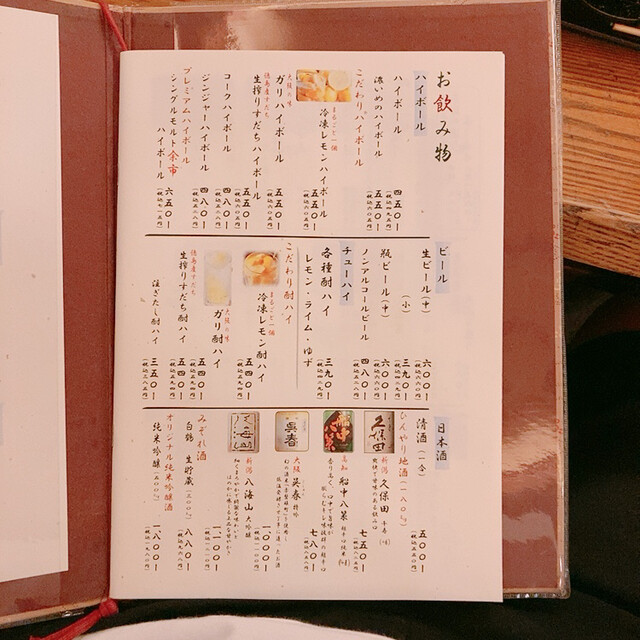 お飲み物
ハイボール
ハイボール 四五〇ー
(税込四九五円)
濃いめのハイボール 五五〇ー
(税込六〇五円)
こだわりハイボール
まるごと一個
冷凍レモンハイボール 五五〇ー
(税込六〇五円)
大阪の味
ガリハイボール 五五〇ー
(税込六〇五円)
徳島産すだち
生搾りすだちハイボール 五五〇ー
(税込六〇五円)
コークハイボール 四八〇ー
(税込五二八円)
ジンジャーハイボール 四八〇ー
(税込五二八円)
プレミアムハイボール
シングルモルト余市
ハイボール 六五〇ー
(税込七一五円)
ビール
生ビール(中) 六〇〇ー
(税込六六〇円)
(小) 三九〇ー
(税込四二九円)
瓶ビール(中) 六〇〇ー
(税込六六〇円)
ノンアルコールビール 四八〇ー
(税込五二八円)
チューハイ
各種酎ハイ 三九〇ー
(税込四二九円)
レモン・ライム・ゆず
こだわり酎ハイ
まるごと一個
冷凍レモン酎ハイ 五四〇ー
(税込五九四円)
大阪の味
ガリ酎ハイ 五四〇ー
(税込五九四円)
徳島産すだち
生搾りすだち酎ハイ 五四〇ー
(税込五九四円)
注ぎたし酎ハイ 三五〇ー
(税込三八五円)
日本酒
清酒(一合) 五〇〇ー
(税込五五〇円)
ひんやり地酒(一八〇㎖)
久保田
新潟 久保田 千寿
七五〇ー
船中八策
高知 船中八策
七八〇ー
呉春
大阪 呉春 特吟
一〇〇〇ー
八海山
新潟 八海山 大吟醸
一一〇〇ー
みぞれ酒
白鶴 生貯蔵(三〇〇㎖) 八八〇ー
オリジナル純米吟醸酒
純米吟醸(五〇〇㎖) 一八〇〇ー
(税込一九八〇円)